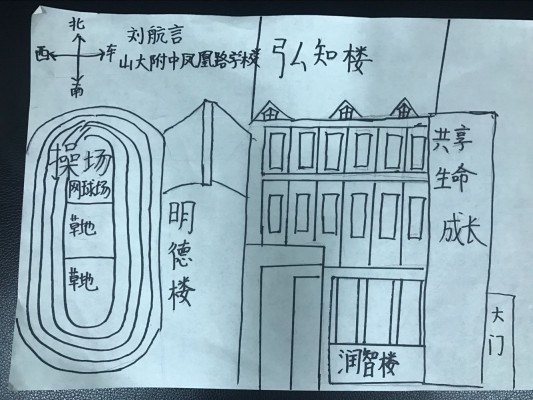 北
西
东
南
刘航言
山大附中凤凰路学校
弘知楼
操场
网球场
草地
草地
明德楼
共享
生命
成长
润智楼
大门